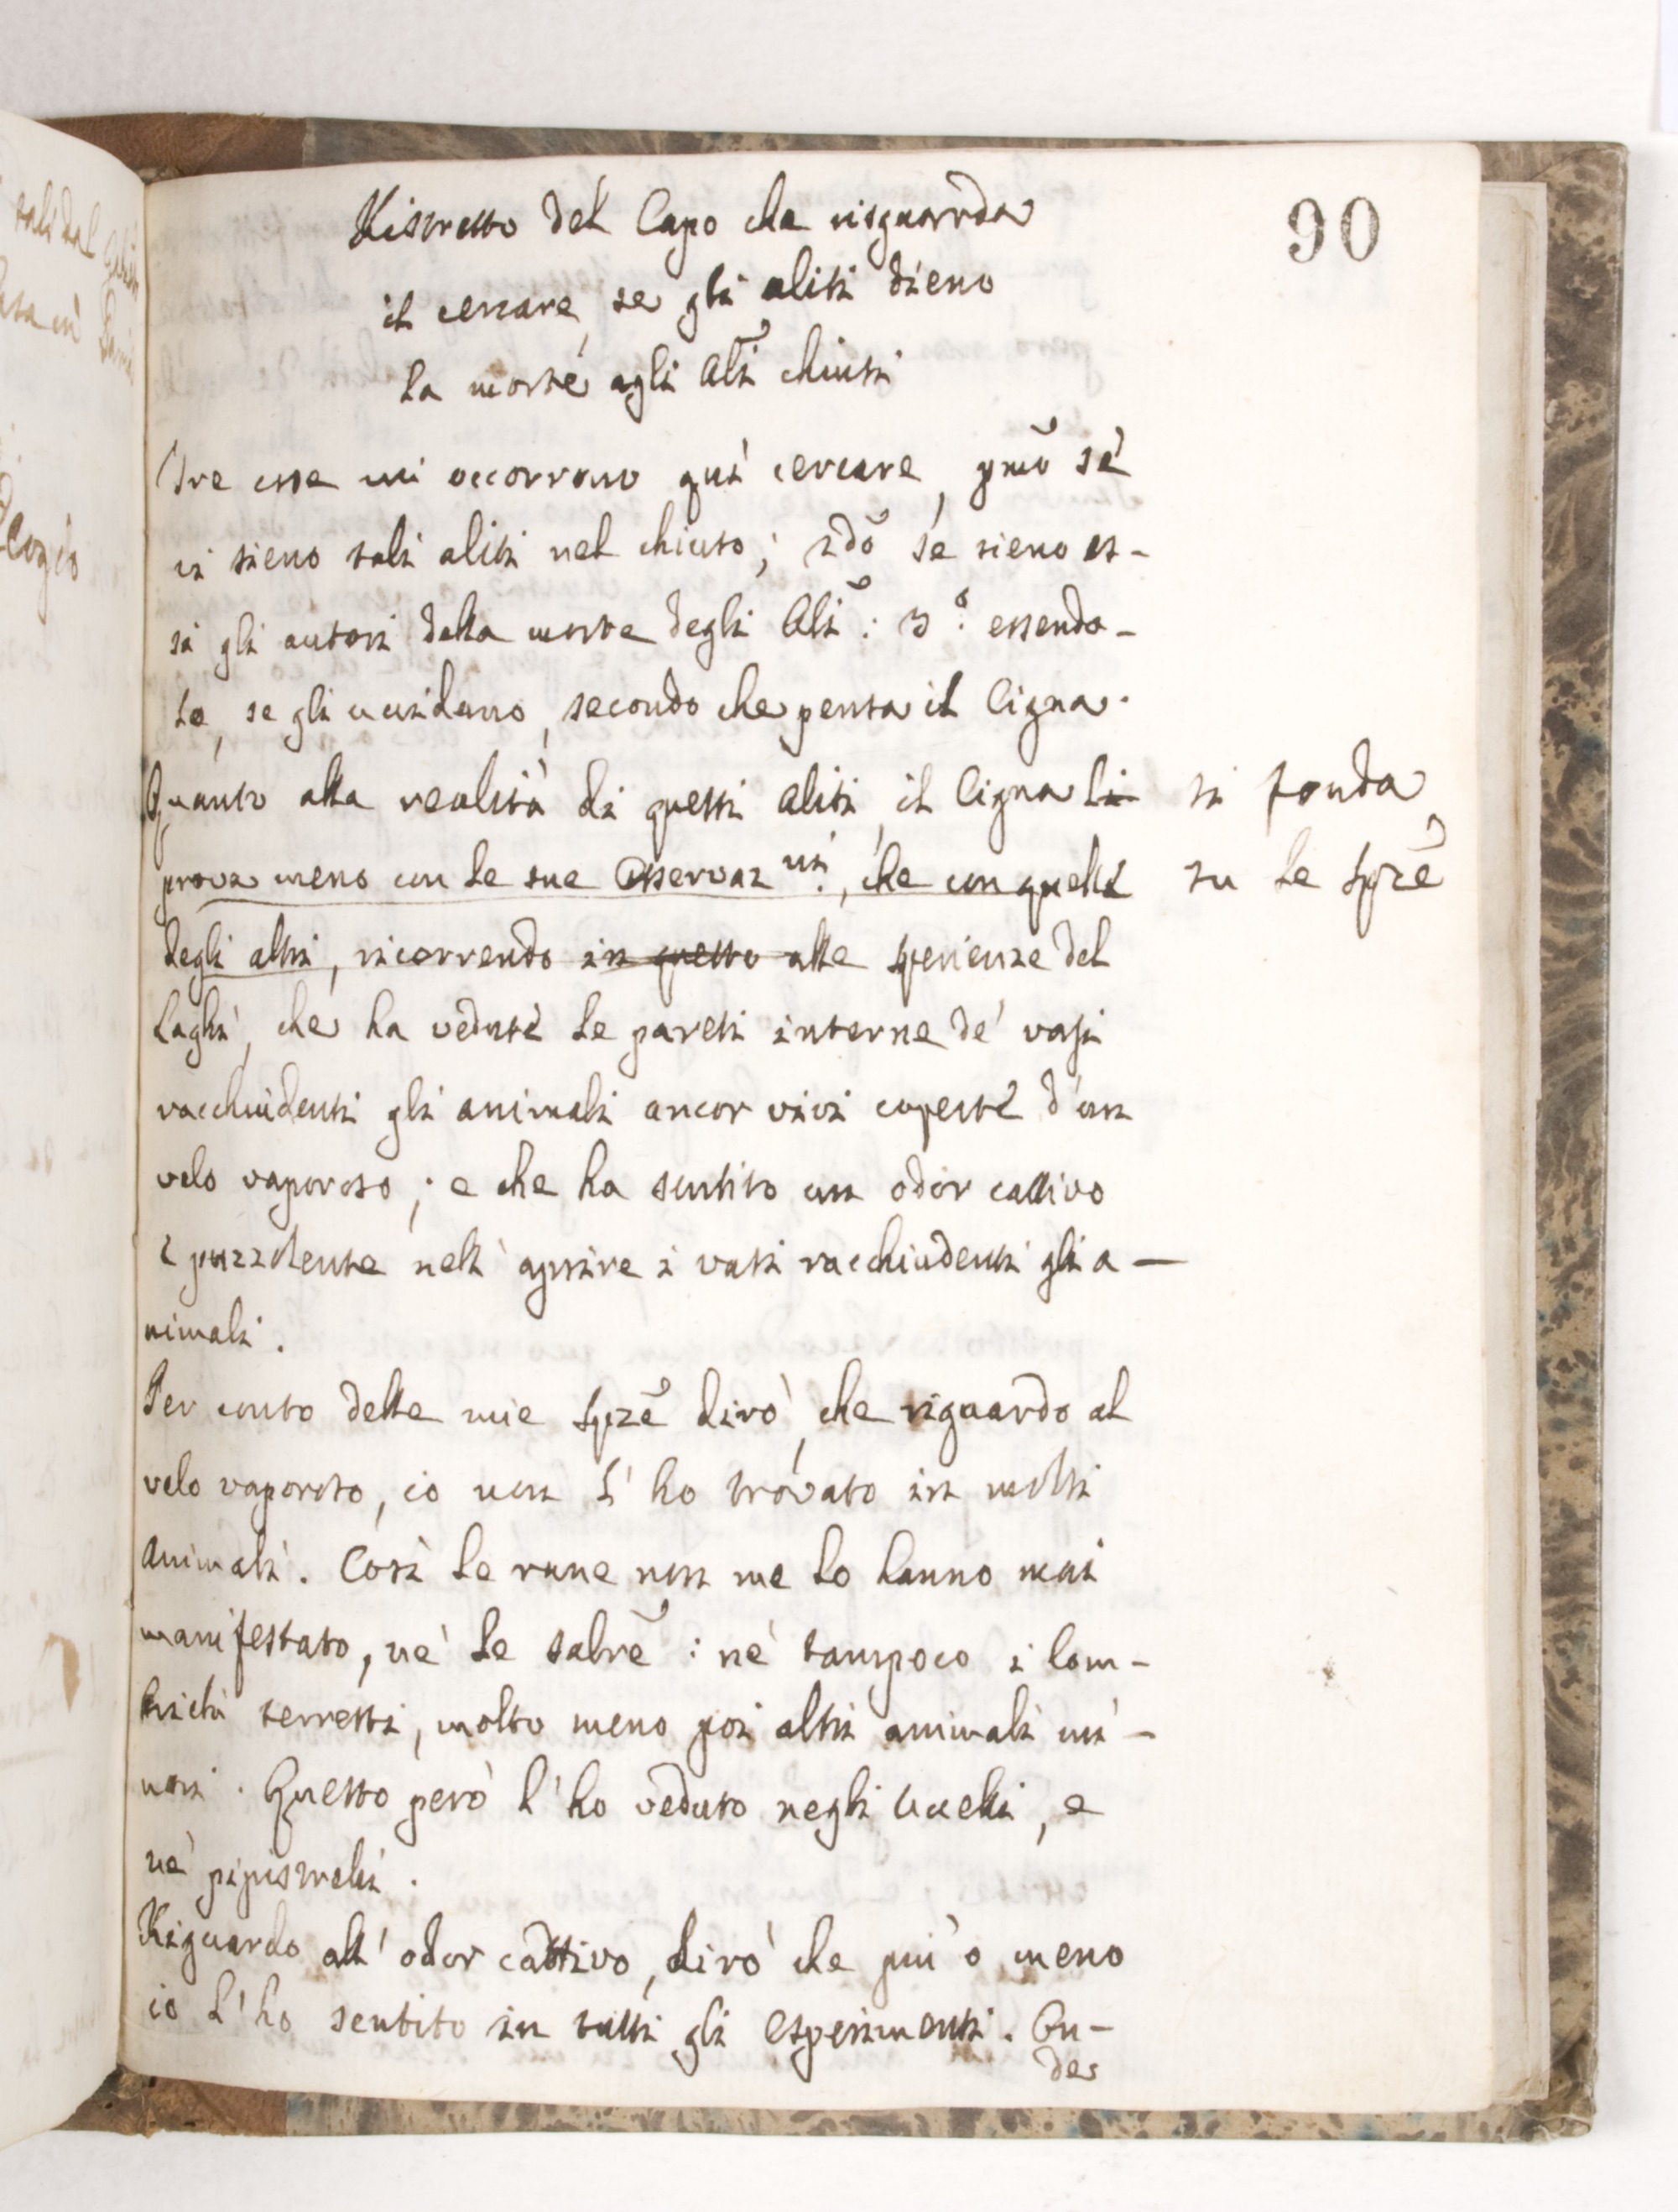 90
Ristretto del Capo che risguarda
il cercare, se gli aliti dieno
la morte agli Ali͠ chiusi
Tre cose mi occorrono quì cercare, pmõ se
vi sieno tali aliti nel chiuso; 2dõ se sieno es-
si gli autori della morte degli Ali͠: 3.° essendo-
lo, se gli uccidano, secondo che pensa il Cigna.
Quanto alla realità di questi aliti, il Cigna li si fonda
prova meno con le sue Osservaz.ni, che con quelle su le spzẽ
degli altri, ricorrendo in questo alle sperienze del
Laghi, che ha vedute le pareti interne de' vasi
racchiudenti gli animali ancor vivi coperte d'un
velo vaporoso; e che ha sentito un odor cattivo
e puzzolente nell'aprire i vasi racchiudenti gli a-
nimali.
Per conto delle mie spzẽ dirò, che riguardo al
velo vaporoso, io non l'ho trovato in molti
animali. Così le rane non me lo hanno mai
manifestato, nè le salrẽ: nè tampoco i lom-
brichi terrestri, molto meno poi altri animali mi-
nori. Questo però l'ho veduto negli Uccelli, e
ne' pipistrelli.
Riguardo all'odor cattivo, dirò che più o meno
io l'ho sentito in tutti gli esperimenti. On-
de